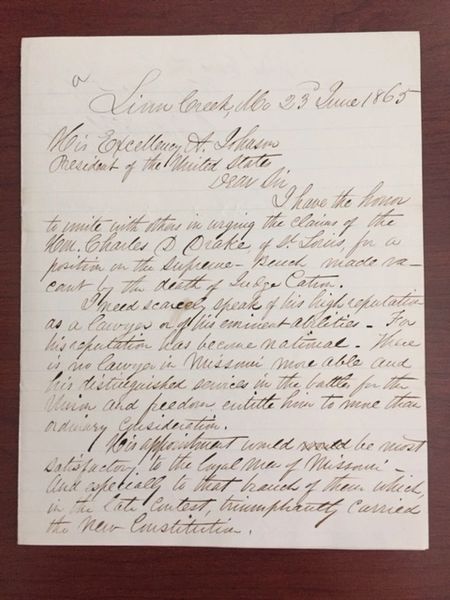 a
Linn Creek, Mo 23d June 1865
His Excellency A. Johnson
President of the United States
Dear Sir
I have the honor
to unite with others in urging the claims of the
Hon. Charles D Drake, of St Louis, for a
position on the Supreme Bench made va-
cant by the death of Judge Catron.
I need scarcely speak of his high reputation
as a lawyer or of his eminent abilities - For
his reputation has become national - There
is no lawyer in Missouri more able and
his distinguished services in the battle for the
Union and freedom entitle him to more than
ordinary consideration.
His appointment would would be most
satisfactory to the loyal men of Missouri -
And especially to that branch of them which,
in the late contest, triumphantly carried
the New Constitution.